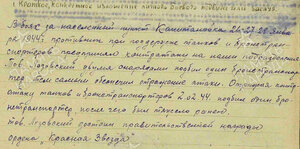 Краткое, конкретное изложение личного боевого подвига или заслуг
В боях за населенный пункт Каштановка 26-27-28 Янва-
ря 1944г противник при поддержке танков и бронетран-
спортеров предпринял контратаки на наши подразделения
Тов. Лозовский двумя снарядами подбил один бронетранспор-
тер, тем самым обеспечил отражение атаки. Отражая контр
атаку танков и бронетранспортеров 2.02.44. подбил один бро-
нетранспортер после чего был тяжело ранен.
тов. Лозовский достоин правительственной награды
ордена "Красная Звезда"